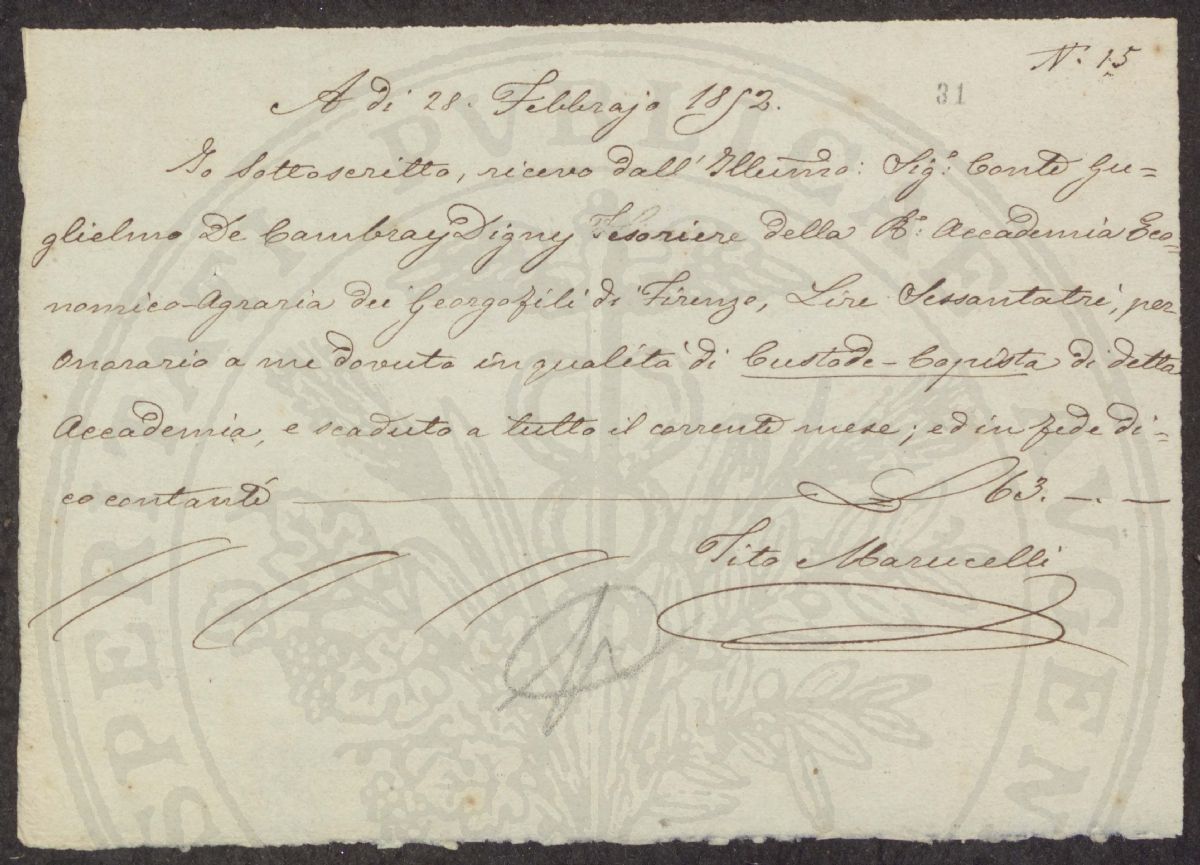 N.º 15
31
A di 28. Febbrajo 1852.
Io Sottoscritto, ricevo dall' Illumo: Sig.º Conte Gu=
glielmo De Cambray Digny Tesoriere della R.ª Accademia Eco=
nomico-Agraria dei Georgofili di Firenze, Lire Sessantatré, per
Onorario a me dovuto in qualità di Custode-Copista di detta
Accademia, e scaduto a tutto il corrente mese; ed in fede di=
co contanti £ 63. –.–
Tito Marucelli
PROSPERITATI PVBLICAE AVGEN